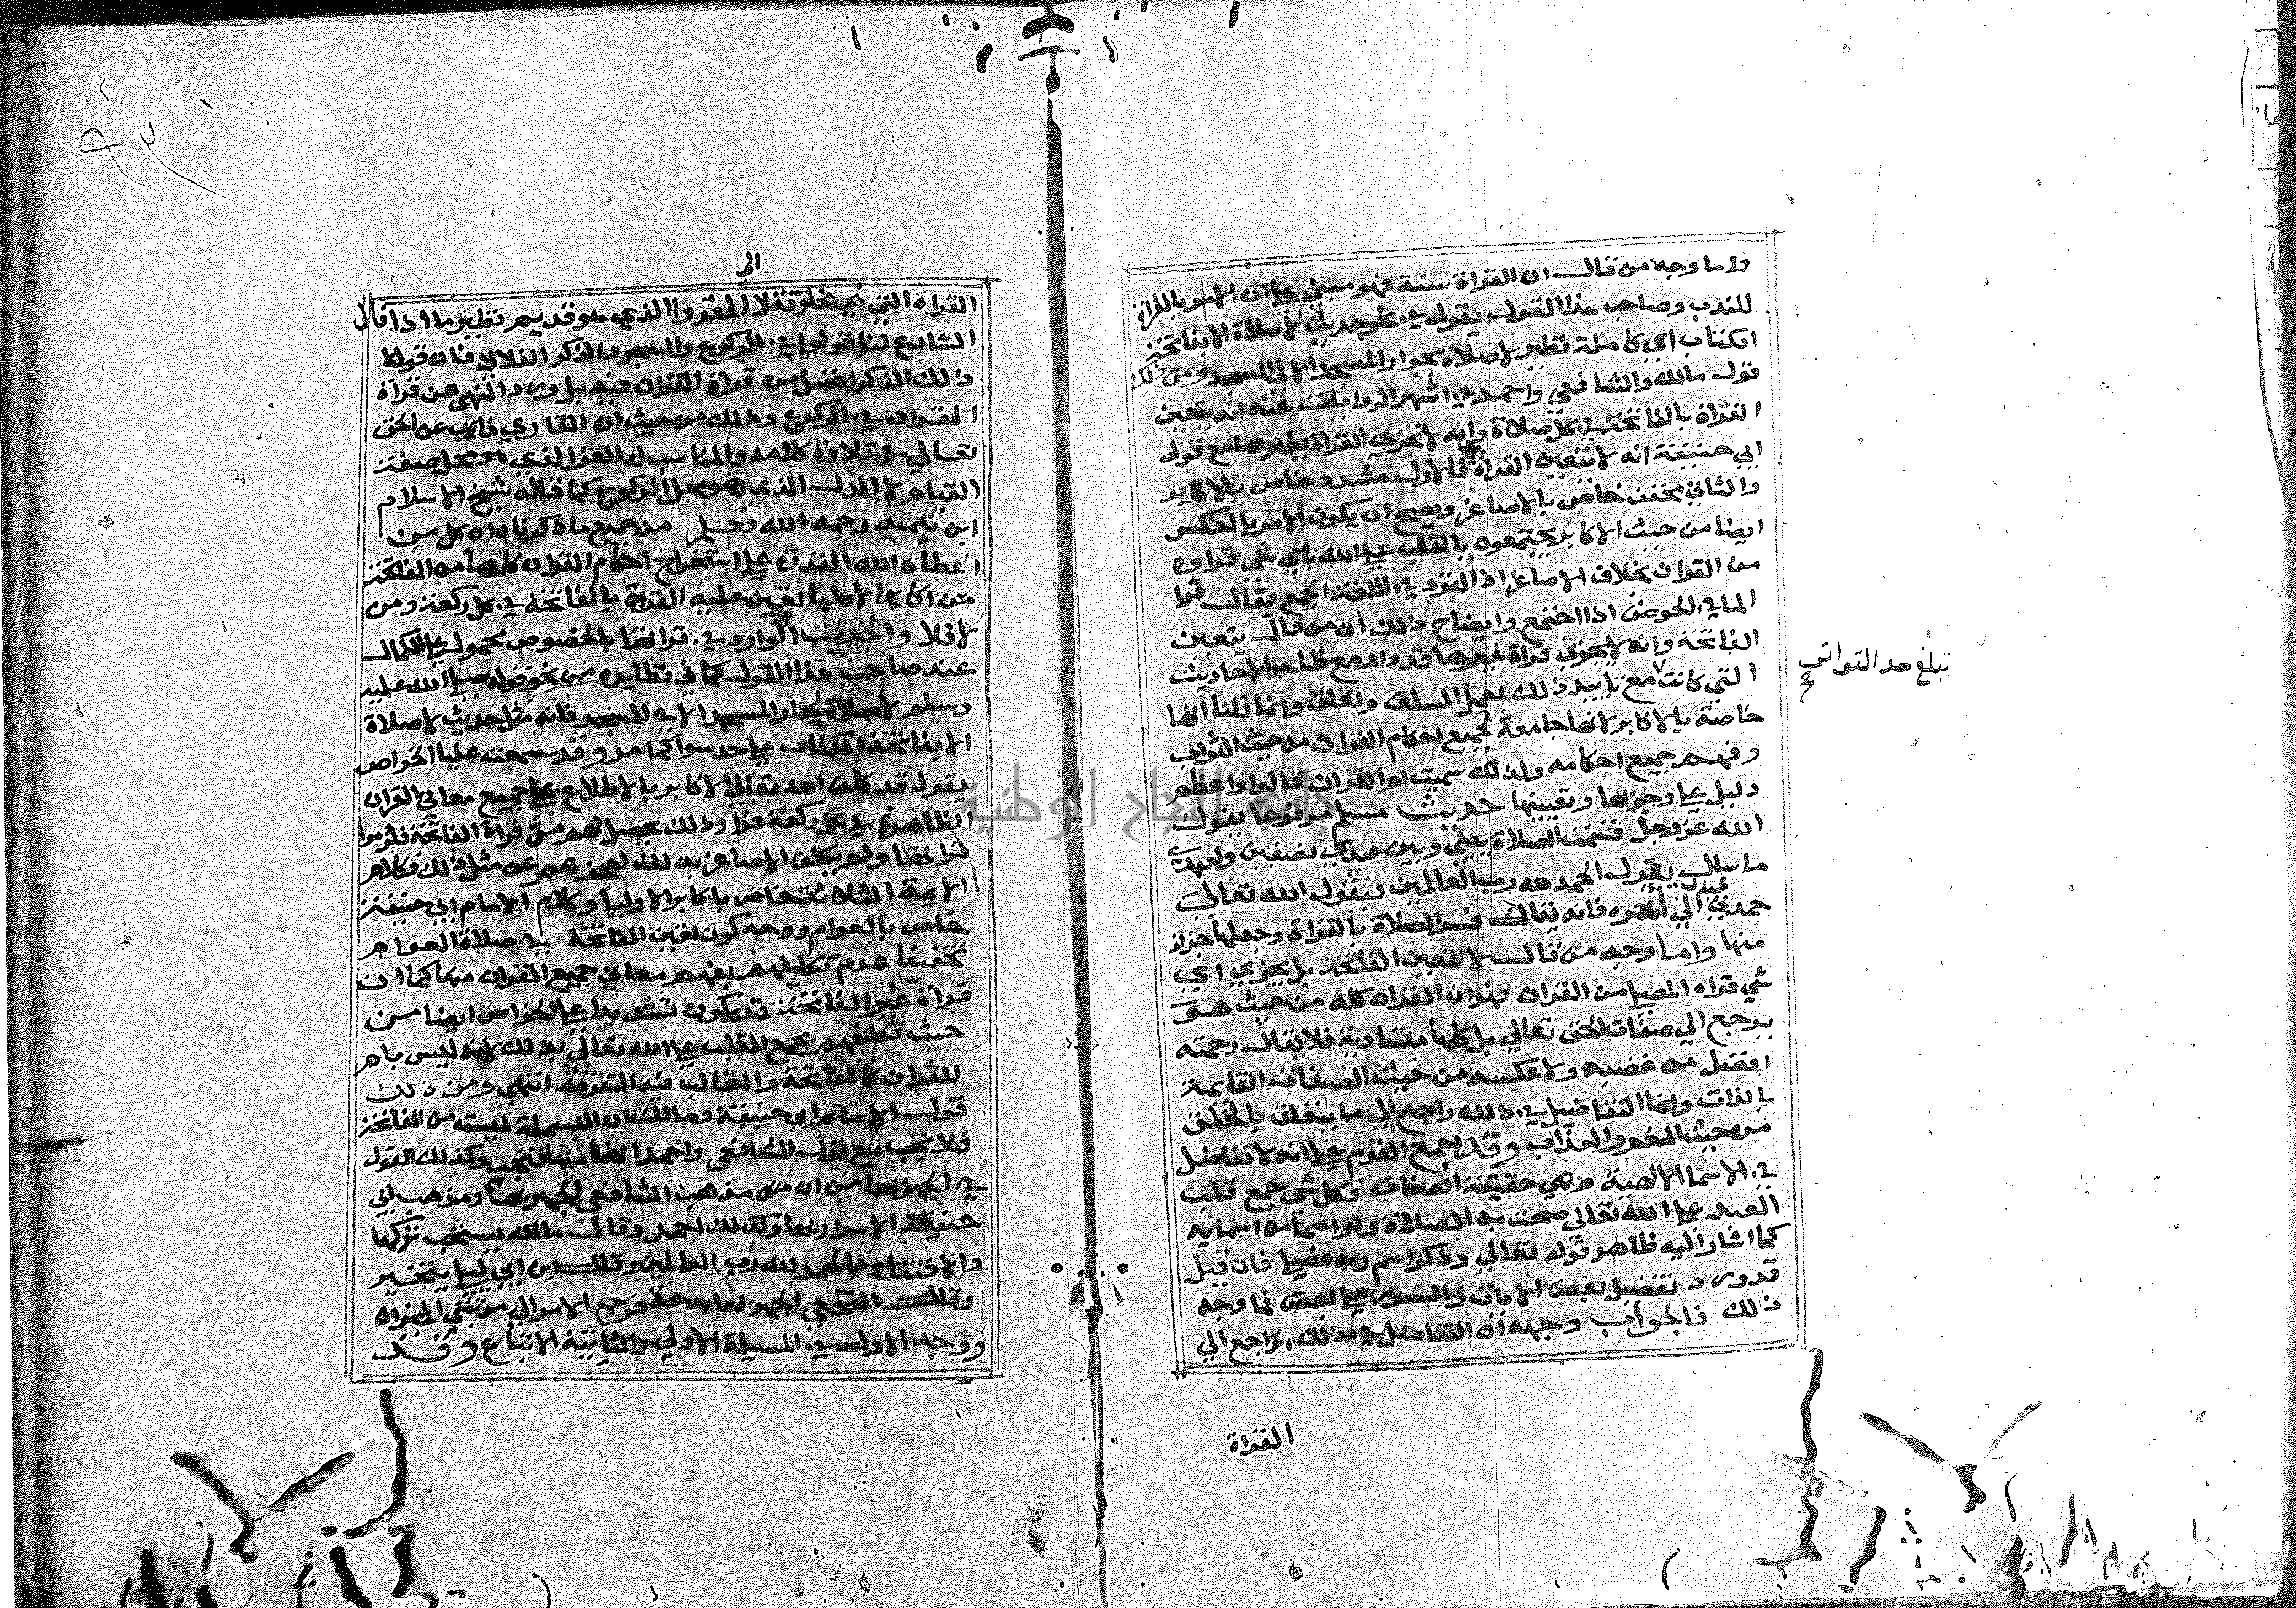 واما وجه من قال ان القراة سنة فهو مبني علي ان الامر بالقراة
للندب وصاحب هذا القول يقول في نحو حديث لا صلاة الا بفاتحة
الكتاب اي كاملة نظير لا صلاة بجوار المسجد الا في المسجد ومن ذلك
قول مالك والشافعي واحمد في اشهر الروايات عنه انه يتعين
القراة بالفاتحة في كل صلاة وانه لا تجزي القراة بغيرها مع قول
ابي حنيفة انه لا تتعين القراة فالاول مشدد خاص بالاكابر
والثاني مخفف خاص بالاصاغر ويصح ان يكون الامر بالعكس
ايضا من حيث الاكابر يجتمعون بالقلب علي الله باي شي قراوه
من القران بخلاف الاصاغر اذ القرو في اللغة الجمع يقال قرا
الما في الحوض اذا اجتمع وايضاح ذلك ان من قال بتعين
الفاتحة وانه لا يجزي قراة غيرها قد دار مع ظاهر الاحاديث
التي كانت مع تاييد ذلك بعمل السلف والخلف وانما قلنا انها
تبلغ حد التواتر
صح
خاصة بالاكابر لانها جامعة لجميع احكام القران من حيث الثواب
وفهم جميع احكامه ولذلك سميت ام القران قالوا واعظم
دليل علي وجوبها وتعيينها حديث مسلم مرفوعا يقول
الله عز وجل قسمت الصلاة بيني وبين عبدي نصفين ولعبدي
ما سال يقول الحمد لله رب العالمين فيقول الله تعالي
حمدني عبدي الي اخره فانه تعالي فسر الصلاة بالقراة وجعلها جزء
منها واما وجه من قال لا تتعين الفاتحة بل يجزي اي
شي قراه المصلي من القران فهو ان القران كله من حيث هو
يرجع الي صفات الحق تعالي بل كلها متساوية فلا يقال رحمته
افضل من غضبه ولا عكسه من حيث الصفات القايمة
بالذات وانما التفاضل في ذلك راجع الي ما يتعلق بالخلق
من حيث النعيم والعذاب وقد اجمع القوم علي انه لا تفاضل
في الاسما الالهية وهي حقيقة الصفات فكل شي جمع قلب
العبد علي الله تعالي صحت به الصلاة ولو اسما من اسمايه
كما اشار اليه ظاهر قوله تعالي وذكر اسم ربه فصلي فان قيل
قد ورد تفضيل بعض الايات والسور علي بعض فما وجه
ذلك فالجواب وجهه ان التفاضل في ذلك راجع الي
القراة
الي
القراة التي هي مخلوقة لا المقروا الذي هو قديم نظير ما اذا قال
الشارع لنا قولوا في الركوع والسجود الذكر الفلاني فان قولنا
ذلك الذكر افضل من قراة القران فيه بل ورد النهي عن قراة
القران في الركوع وذلك من حيث ان القاري نايب عن الحق
تعالي في تلاوة كلامه والمناسب له العز الذي هو محل صفة
القيام لا الذل الذي هو محل الركوع كما قاله شيخ الاسلام
ابن تيميه رحمه الله فعلم من جميع ما ذكرناه ان كل من
اعطاه الله القدرة علي استخراج احكام القران كلها من الفاتحة
من اكابر الاوليا تعين عليه القراة بالفاتحة في كل ركعة ومن
لا فلا والحديث الوارد في قراتها بالخصوص محمول علي الكمال
عند صاحب هذا القول كما في نظايره من نحو قوله صلي الله عليه
وسلم لا صلاة لجار المسجد الا في المسجد فانه مثل حديث لا صلاة
الا بفاتحة الكتاب علي حد سوا كما مر وقد سمعت عليا الخواص
يقول قد كلف الله تعالي الاكابر بالاطلاع علي جميع معاني القران
الظاهرة في كل ركعة قراوا ذلك يحصل لهم من قراة الفاتحة فلزموا
قراتها ولم يكلف الاصاغر بذلك لعجزهم عن مثل ذلك فكلام
الايمة الثلاثة خاص باكابر الاوليا وكلام الامام ابي حنيفة
خاص بالعوام ووجه كون تعين الفاتحة في صلاة العوام
تخفيفا عدم تكليفهم بفهم معاني جميع القران منها كما ان
قراة غير الفاتحة قد يكون تشديدا علي الخواص ايضا من
حيث تكليفهم بجمع القلب علي الله تعالي بذلك لانه ليس بام
للقران كالفاتحة والغالب فيه التفرقة انتهي ومن ذلك
قول الامام ابي حنيفة ومالك ان البسملة ليست من الفاتحة
فلا تجب مع قول الشافعي واحمد انها منها فتجب وكذلك القول
في الجهر بها من ان من مذهب الشافعي الجهر بها ومذهب ابي
حنيفة الاسرار بها وكذلك احمد وقال مالك يستحب تركها
والافتتاح بالحمد لله رب العالمين وقال ابن ابي ليلي يتخير
وقال النخعي الجهر بها بدعة فرجع الامر الي مرتبتي الميزان
ووجه الاول في المسيلة الاولي والثانية الاتباع وقد